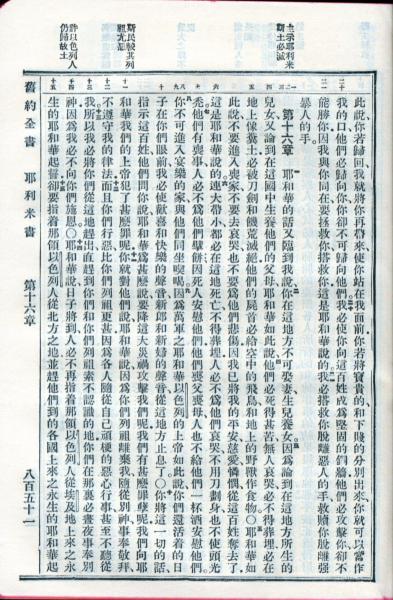 示耶利米
斯土必滅
斯民較其列
祖尤惡
許以色列人
仍歸故土
此說、你若歸回、我就將你再帶來、使你站在我面前、你若將寶貴的和下賤的分別出來、你就可以當作
我的口、他們必歸向你、你卻不可歸向他們、我必使你向這百姓成爲堅固的銅牆、他們必攻擊你、卻不
能勝你、因我與你同在、要拯救你搭救你、這是耶和華說的、我必搭救你脫離惡人的手、救贖你脫離強
暴人的手。
第十六章 耶和華的話又臨到我說、你在這地方不可娶妻生兒養女、因爲論到在這地方所生的
兒女、又論到在這國中生養他們的父母、耶和華如此說、他們必死得甚苦、無人哀哭、必不得葬埋、必在
地上像糞土、必被刀劍和饑荒滅絕、他們的屍首、必給空中的飛鳥、和地上的野獸作食物○耶和華如
此說、不要進入喪家、不要去哀哭、也不要爲他們悲傷、因我已將我的平安慈愛憐憫、從這百姓奪去了、
這是耶和華說的、連大帶小、都必在這地死亡、不得葬埋、人必不爲他們哀哭、不用刀劃身、也不使頭光
禿、他們有喪事、人必不爲他們擘餅、因死人安慰他們、他們喪父喪母、人也不給他們一杯酒安慰他們、
你不可進入宴樂的家、與他們同坐喫喝、因爲萬軍之耶和華以色列的上帝如此說、你們還活着的日
子、在你們眼前、我必使歡喜和快樂的聲音、新郎和新婦的聲音、從這地方止息了○你將這一切的話
指示這百姓、他們問你說、耶和華爲甚麼說、要降這大災禍攻擊我們呢、我們有甚麼罪孽呢、我們向耶
和華我們的上帝犯了甚麼罪呢、你就對他們說、耶和華說、因爲你們列祖離棄我、隨從別神、事奉敬拜、
不遵守我的律法、而且你們行惡、比你們列祖更甚、因爲各人隨從自己頑梗的惡心行事、甚至不聽從
我、所以我必將你們從這地趕出、直趕到你們和你們列祖素不認識的地、你們在那裏必晝夜事奉別
神、因爲我必不向你們施恩○耶和華說、日子將到、人必不再指着那領以色列人從埃及地上來之永
生的耶和華起誓、卻要指着那領以色列人從北方之地、並趕他們到的各國上來之永生的耶和華起
舊約全書 耶利米書 第十六章 八百五十一